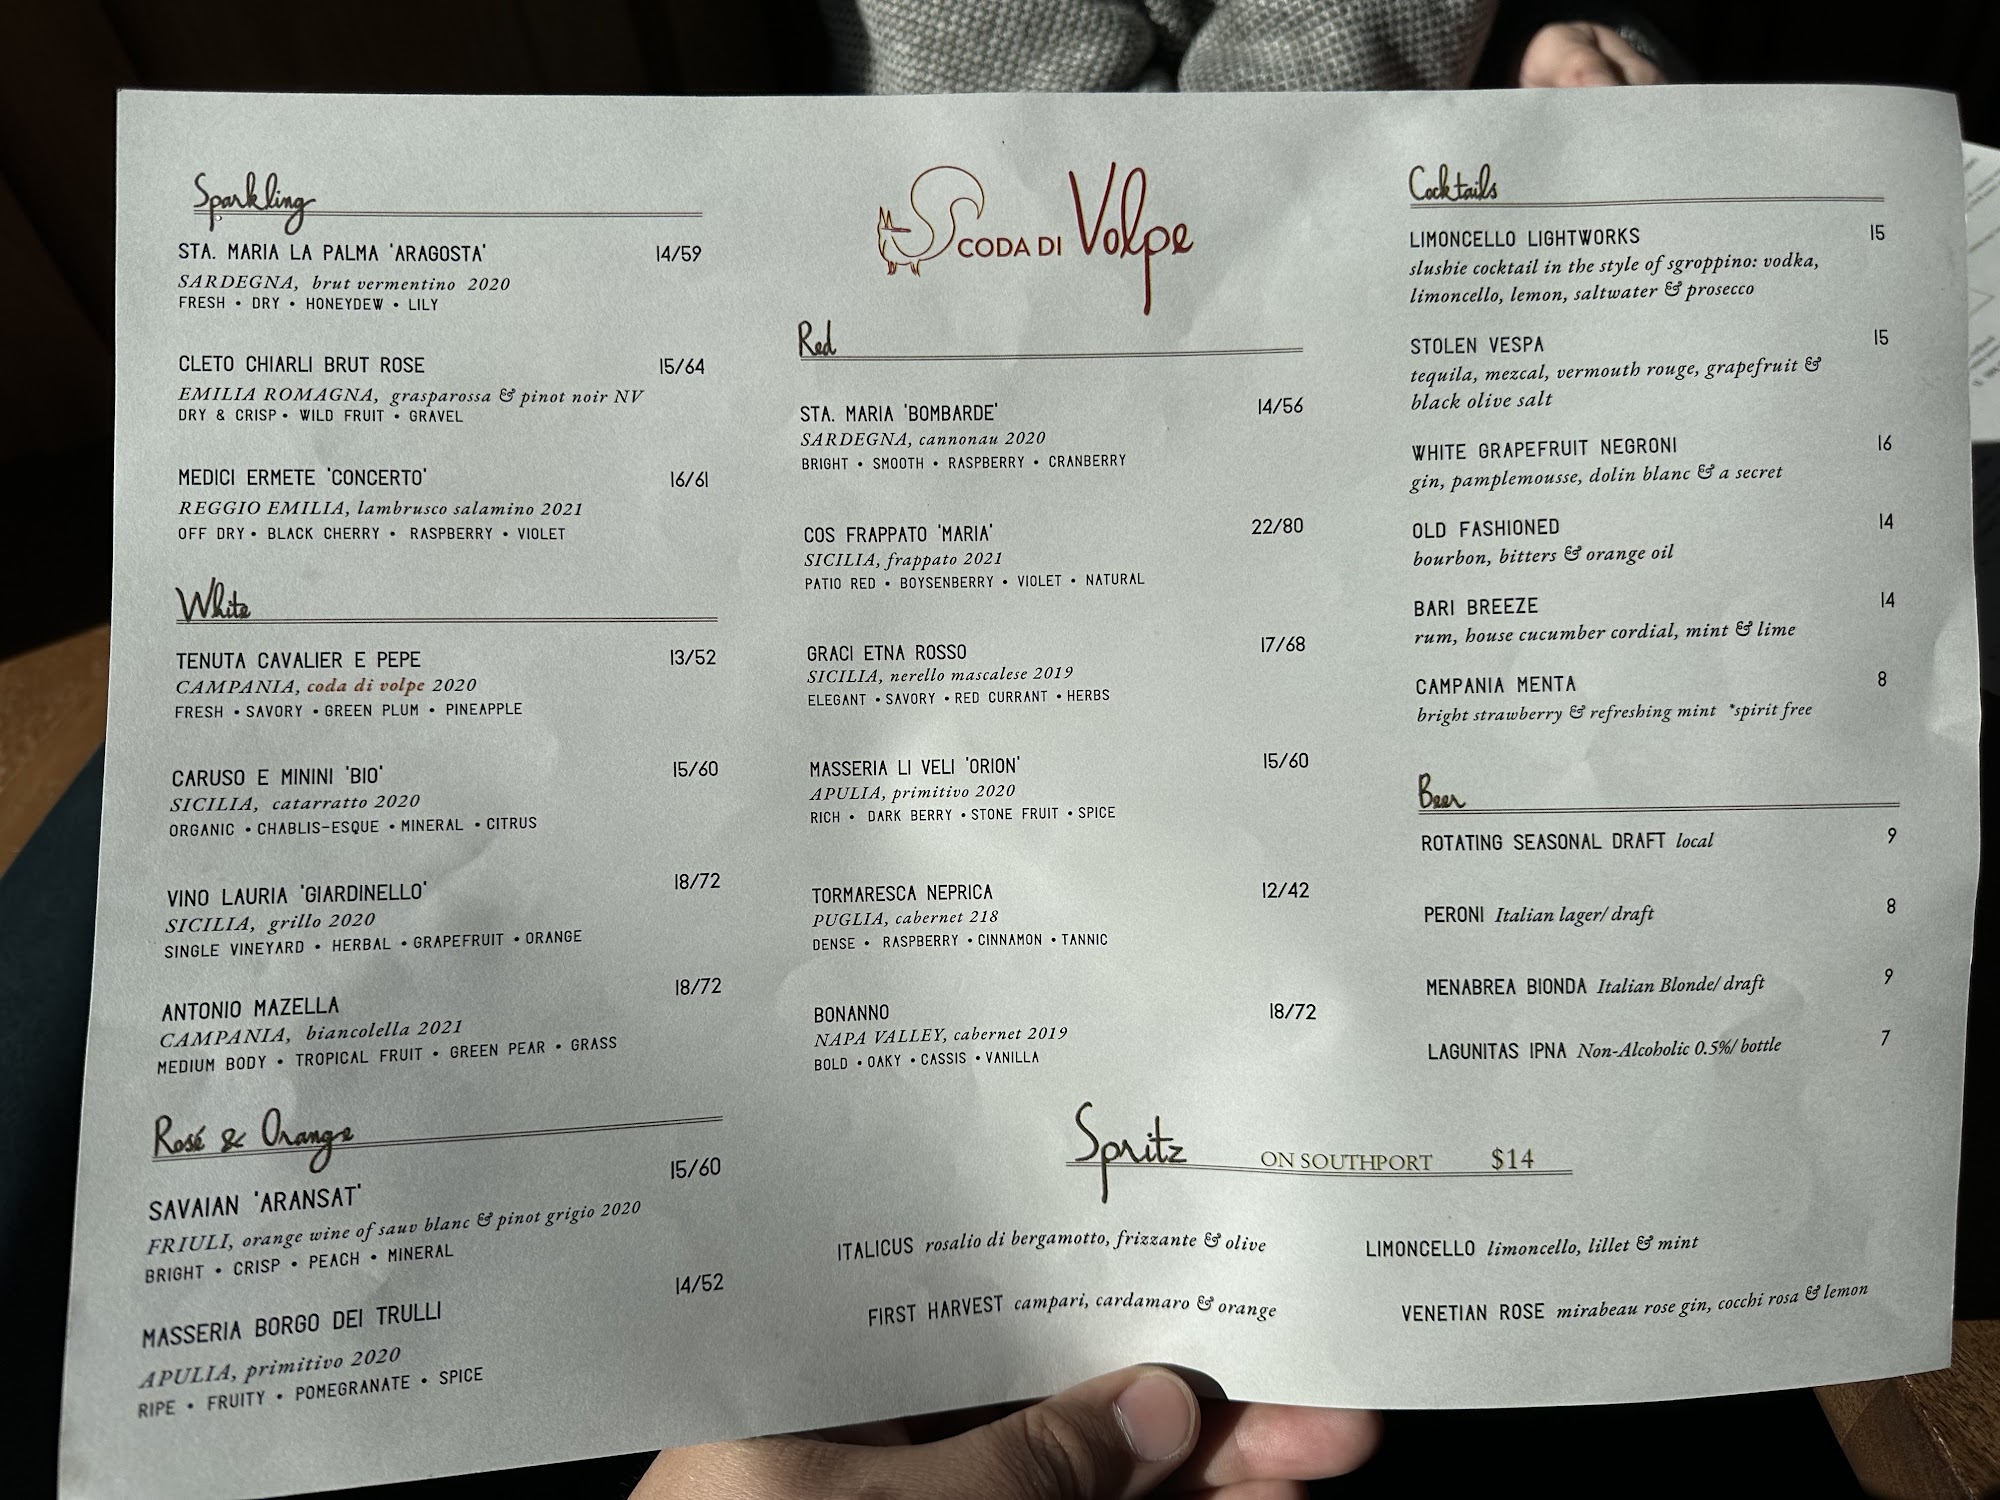 Sparkling
STA. MARIA LA PALMA 'ARAGOSTA' 14/59
SARDEGNA, brut vermentino 2020
FRESH • DRY • HONEYDEW • LILY
CLETO CHIARLI BRUT ROSE 15/64
EMILIA ROMAGNA, grasparossa & pinot noir NV
DRY & CRISP • WILD FRUIT • GRAVEL
MEDICI ERMETE 'CONCERTO' 16/61
REGGIO EMILIA, lambrusco salamino 2021
OFF DRY • BLACK CHERRY • RASPBERRY • VIOLET
White
TENUTA CAVALIER E PEPE 13/52
CAMPANIA, coda di volpe 2020
FRESH • SAVORY • GREEN PLUM • PINEAPPLE
CARUSO E MININI 'BIO' 15/60
SICILIA, catarratto 2020
ORGANIC • CHABLIS-ESQUE • MINERAL • CITRUS
VINO LAURIA 'GIARDINELLO' 18/72
SICILIA, grillo 2020
SINGLE VINEYARD • HERBAL • GRAPEFRUIT • ORANGE
ANTONIO MAZELLA 18/72
CAMPANIA, biancolella 2021
MEDIUM BODY • TROPICAL FRUIT • GREEN PEAR • GRASS
Rosé & Orange
SAVAIAN 'ARANSAT' 15/60
FRIULI, orange wine of sauv blanc & pinot grigio 2020
BRIGHT • CRISP • PEACH • MINERAL
MASSERIA BORGO DEI TRULLI 14/52
APULIA, primitivo 2020
RIPE • FRUITY • POMEGRANATE • SPICE
CODA DI Volpe
Red
STA. MARIA 'BOMBARDE' 14/56
SARDEGNA, cannonau 2020
BRIGHT • SMOOTH • RASPBERRY • CRANBERRY
COS FRAPPATO 'MARIA' 22/80
SICILIA, frappato 2021
PATIO RED • BOYSENBERRY • VIOLET • NATURAL
GRACI ETNA ROSSO 17/68
SICILIA, nerello mascalese 2019
ELEGANT • SAVORY • RED CURRANT • HERBS
MASSERIA LI VELI 'ORION' 15/60
APULIA, primitivo 2020
RICH • DARK BERRY • STONE FRUIT • SPICE
TORMARESCA NEPRICA 12/42
PUGLIA, cabernet 218
DENSE • RASPBERRY • CINNAMON • TANNIC
BONANNO 18/72
NAPA VALLEY, cabernet 2019
BOLD • OAKY • CASSIS • VANILLA
Cocktails
LIMONCELLO LIGHTWORKS 15
slushie cocktail in the style of sgroppino: vodka,
limoncello, lemon, saltwater & prosecco
STOLEN VESPA 15
tequila, mezcal, vermouth rouge, grapefruit &
black olive salt
WHITE GRAPEFRUIT NEGRONI 16
gin, pamplemousse, dolin blanc & a secret
OLD FASHIONED 14
bourbon, bitters & orange oil
BARI BREEZE 14
rum, house cucumber cordial, mint & lime
CAMPANIA MENTA 8
bright strawberry & refreshing mint *spirit free
Beer
ROTATING SEASONAL DRAFT local 9
PERONI Italian lager/ draft 8
MENABREA BIONDA Italian Blonde/ draft 9
LAGUNITAS IPNA Non-Alcoholic 0.5%/ bottle 7
Spritz ON SOUTHPORT $14
ITALICUS rosalio di bergamotto, frizzante & olive
LIMONCELLO limoncello, lillet & mint
FIRST HARVEST campari, cardamaro & orange
VENETIAN ROSE mirabeau rose gin, cocchi rosa & lemon